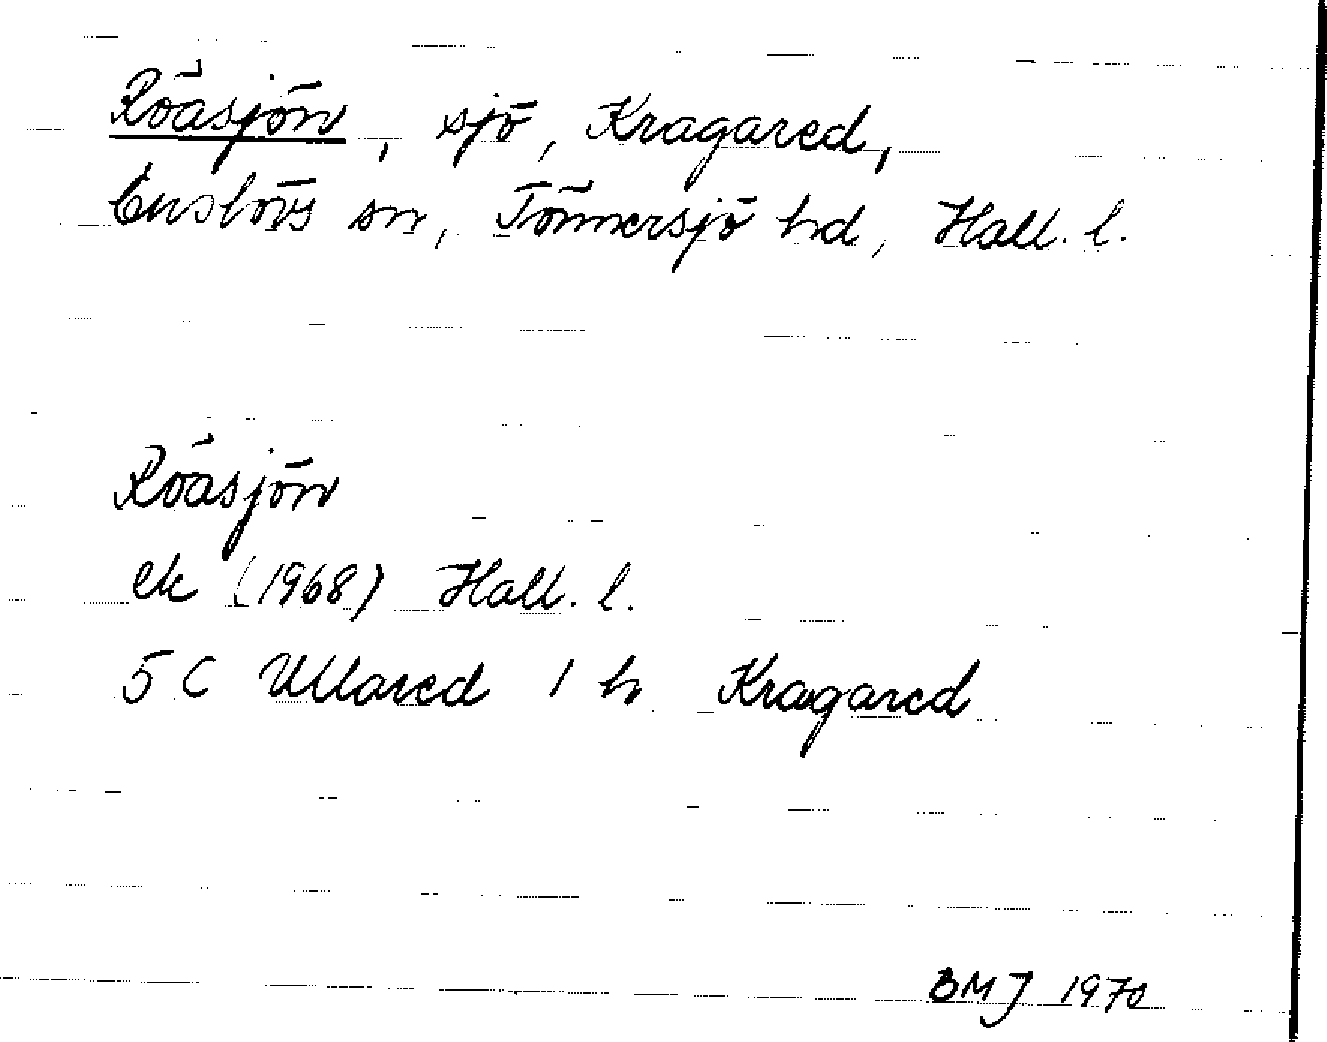 Röåsjön, sjö, Kragared,
Enslövs sn, Tönnersjö hd, Hall. l.
Röåsjön
ek (1968) Hall. l.
5 C Ullared 1 h Kragared
BMJ 1970